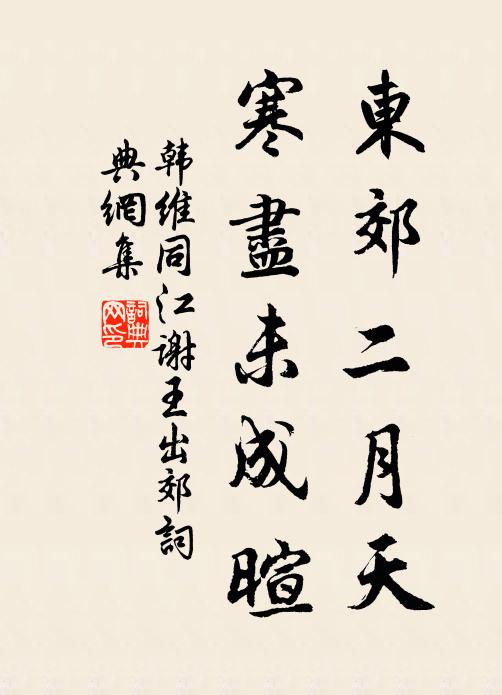 東郊二月天
寒盡未成暄
韩维同江谢王出郊詞
典網集
詞典
网印